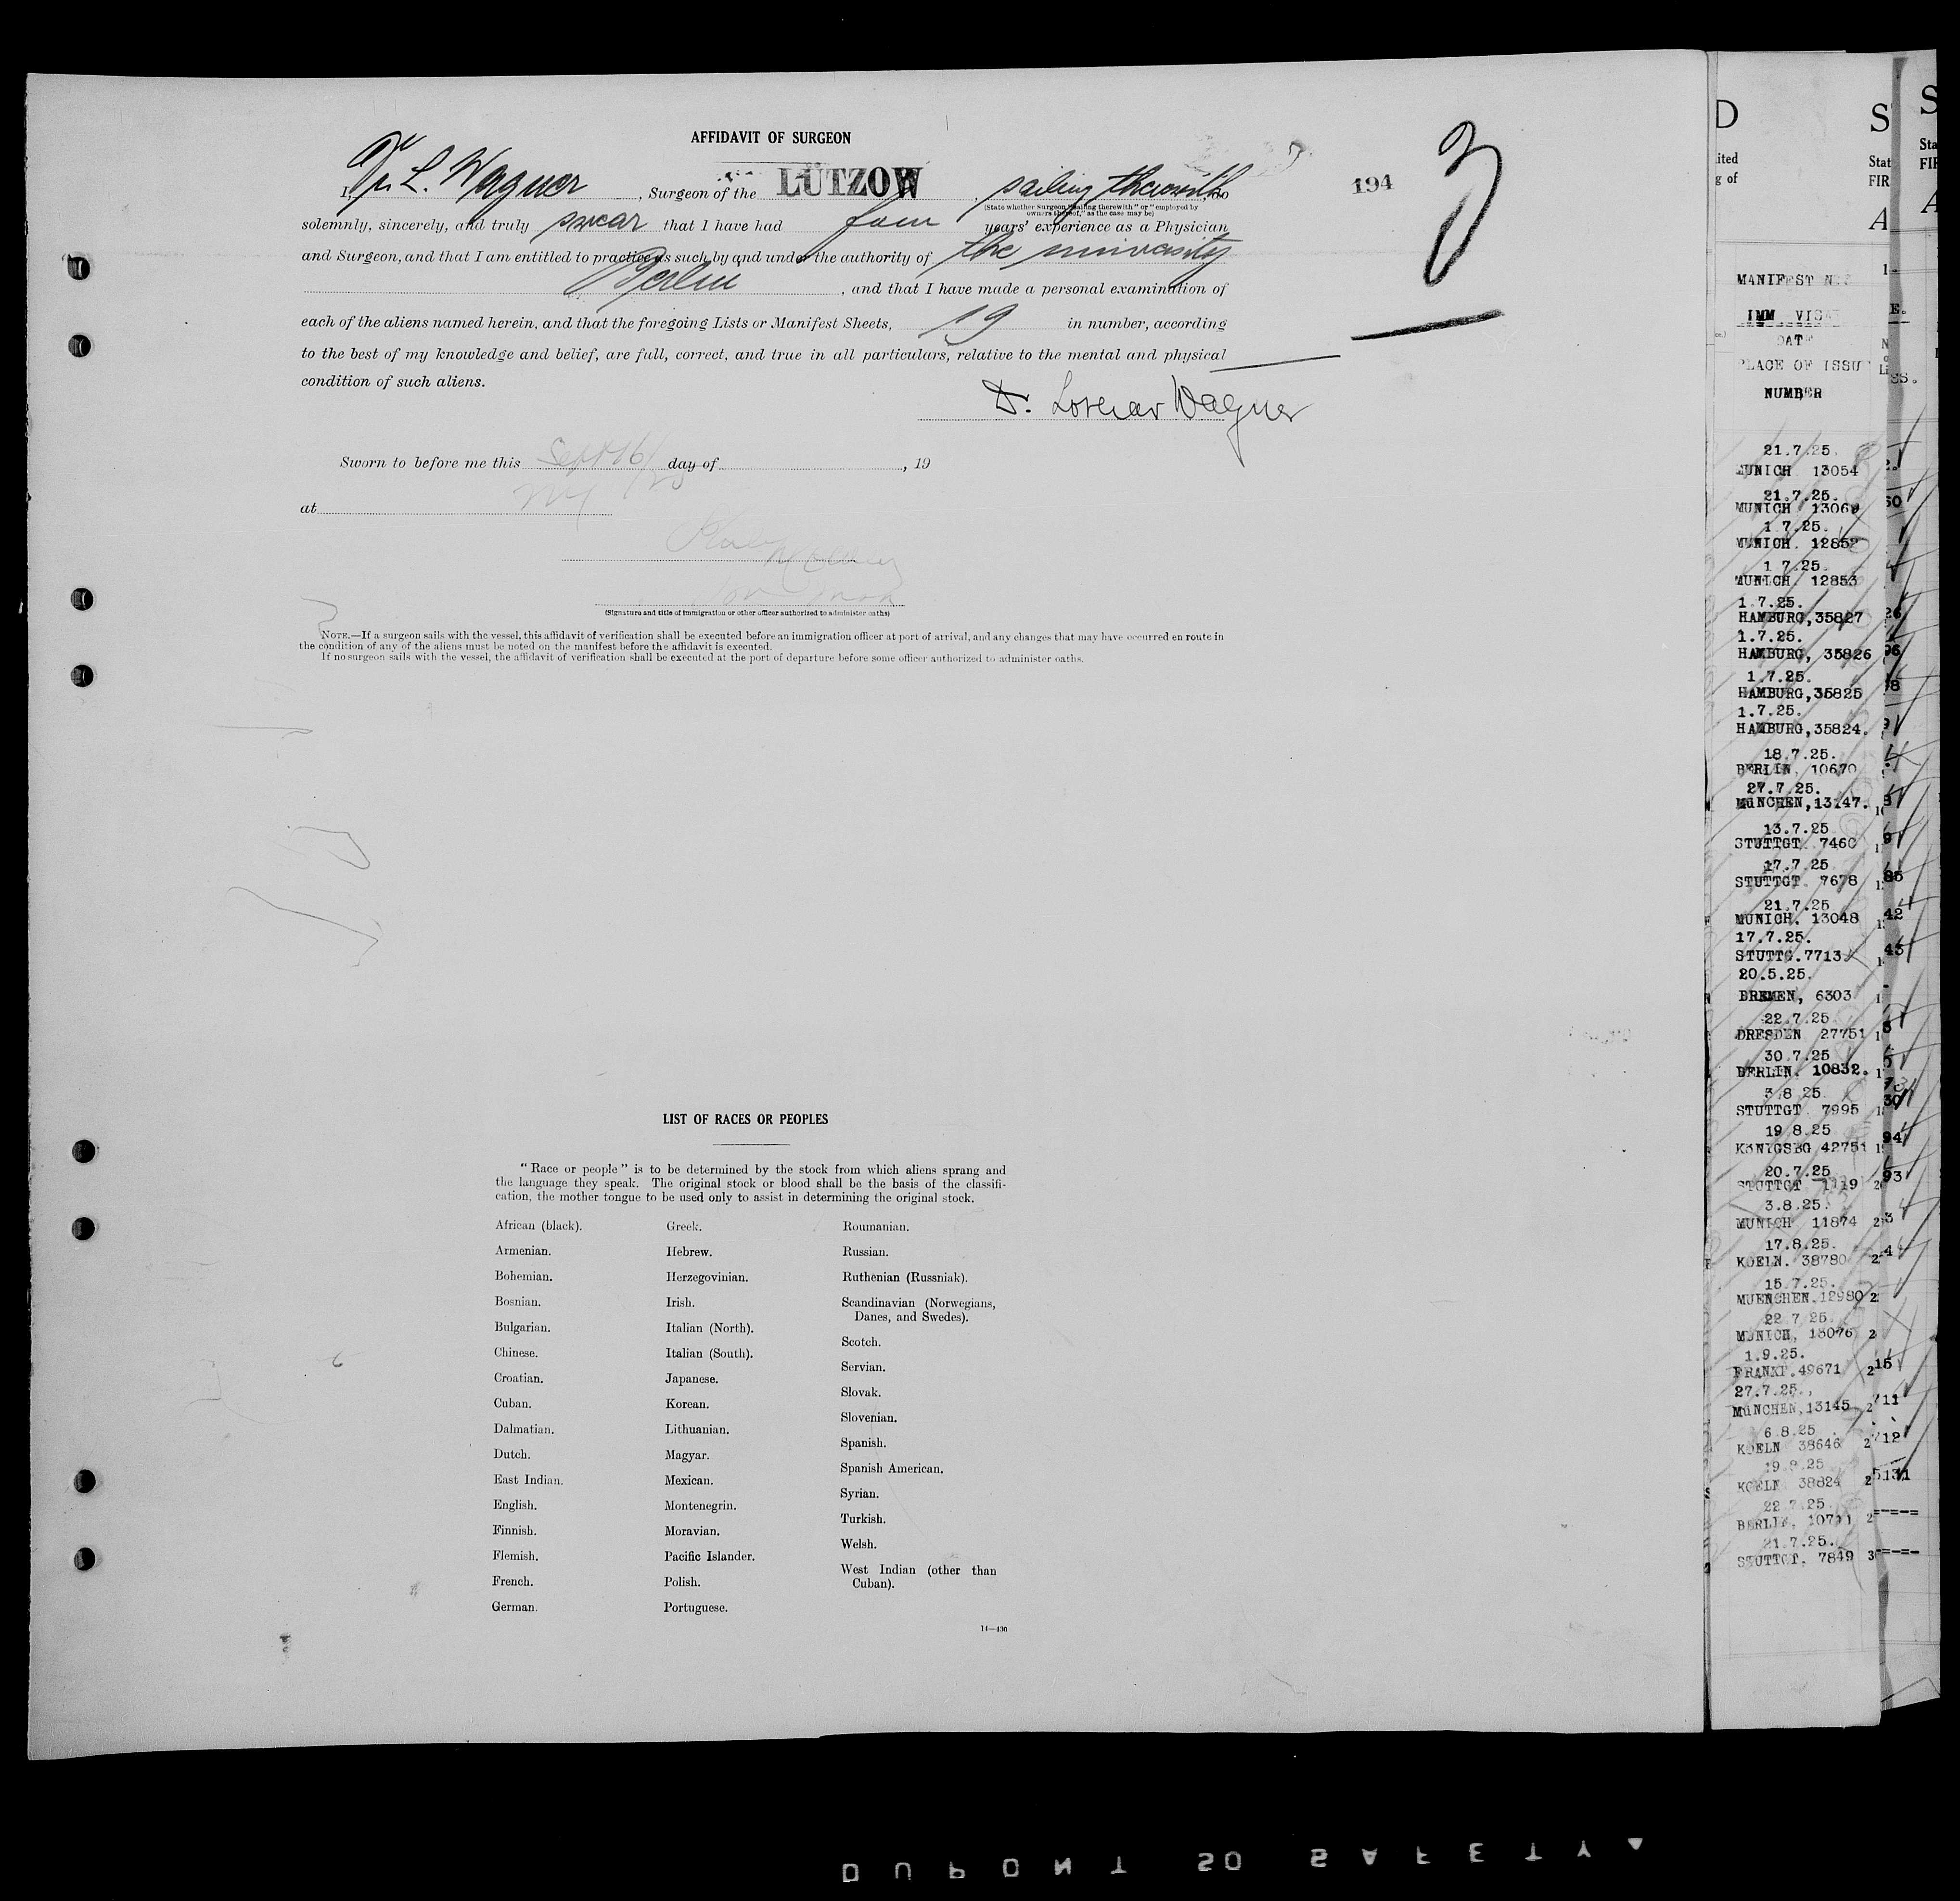 AFFIDAVIT OF SURGEON
I, Dr. L. Wagner, Surgeon of the LÜTZOW, sailing therewith, do
(State whether Surgeon "sailing therewith" or "employed by
owners thereof," as the case may be)
194
3
solemnly, sincerely, and truly swear that I have had four years' experience as a Physician
and Surgeon, and that I am entitled to practice as such by and under the authority of the university
Berlin, and that I have made a personal examination of
each of the aliens named herein, and that the foregoing Lists or Manifest Sheets, 19 in number, according
to the best of my knowledge and belief, are full, correct, and true in all particulars, relative to the mental and physical
condition of such aliens.
Dr. Lothar Wagner
Sworn to before me this Sept 16/25 day of , 19
at NY
(Signature and title of immigration or other officer authorized to administer oaths)
NOTE.—If a surgeon sails with the vessel, this affidavit of verification shall be executed before an immigration officer at port of arrival, and any changes that may have occurred en route in
the condition of any of the aliens must be noted on the manifest before the affidavit is executed.
If no surgeon sails with the vessel, the affidavit of verification shall be executed at the port of departure before some officer authorized to administer oaths.
LIST OF RACES OR PEOPLES
"Race or people" is to be determined by the stock from which aliens sprang and
the language they speak. The original stock or blood shall be the basis of the classifi-
cation, the mother tongue to be used only to assist in determining the original stock.
African (black).
Armenian.
Bohemian.
Bosnian.
Bulgarian.
Chinese.
Croatian.
Cuban.
Dalmatian.
Dutch.
East Indian.
English.
Finnish.
Flemish.
French.
German.
Greek.
Hebrew.
Herzegovinian.
Irish.
Italian (North).
Italian (South).
Japanese.
Korean.
Lithuanian.
Magyar.
Mexican.
Montenegrin.
Moravian.
Pacific Islander.
Polish.
Portuguese.
Roumanian.
Russian.
Ruthenian (Russniak).
Scandinavian (Norwegians,
Danes, and Swedes).
Scotch.
Servian.
Slovak.
Slovenian.
Spanish.
Spanish American.
Syrian.
Turkish.
Welsh.
West Indian (other than
Cuban).
14—430
MANIFEST
IMM VISA
PLACE OF ISSU
NUMBER
21.7.25.
MUNICH 13054
21.7.25.
MUNICH 13069
1.7.25.
MUNICH. 12852
1 7.25.
MUNICH. 12853
1.7.25.
HAMBURG,35827
1.7.25.
HAMBURG, 35826
1.7.25.
HAMBURG,35825
1.7.25.
HAMBURG,35824.
18.7.25.
BERLIN. 10670
27.7.25.
MüNCHEN,13147.
13.7.25
STUTTGT 7460
17.7.25
STUTTGT 7678
21.7.25
MUNICH. 13048
17.7.25.
STUTTG.7713
20.5.25.
BREMEN, 6303
22.7.25
DRESDEN 27751
30.7.25
BERLIN. 10832.
3.8 25.
STUTTGT 7995
19 8.25
KöNIGSBG 42751
20.7.25
STUTTGT 1119
3.8.25.
MUNICH 11874
17.8.25.
KOELN. 38780
15.7.25.
MUENCHEN.12980
22 7 25.
MUNICH, 13076
1.9.25.
FRANKF.49671
27.7.25.,
MüNCHEN,13145
6.8.25
KOELN 38646
19.8.25
KOELN 38824
22 7.25.
BERLIN,
21.7.25.
STUTTGT. 7849
DUPONT SO SAFETY